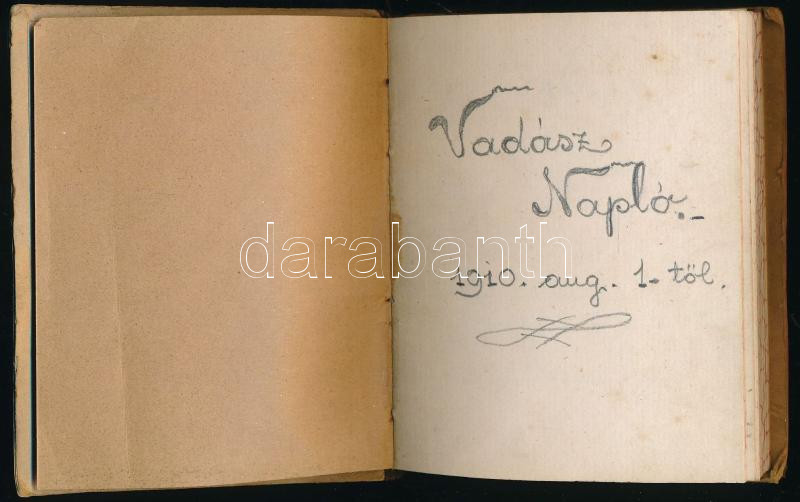 Vadász
Napló.
darabanth
1910. aug. 1-től.